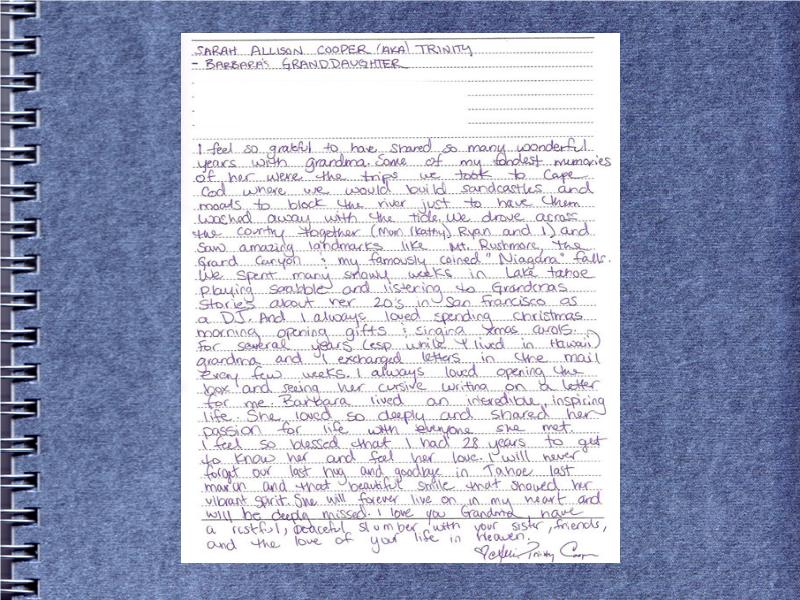 SARAH ALLISON COOPER (AKA) TRINITY
- BARBARA'S GRANDDAUGHTER
I feel so grateful to have shared so many wonderful
years with grandma. Some of my fondest memories
of her were the trips we took to Cape
Cod where we would build sandcastles and
moats to block the river just to have them
washed away with the tide. We drove across
the country together (Mom (Kathy) Ryan and I) and
saw amazing landmarks like Mt. Rushmore, the
Grand Canyon & my famously coined "Niagara" falls.
We spent many snowy weeks in Lake Tahoe
playing scrabble and listening to Grandmas
stories about her 20's in San Francisco as
a DJ. And I always loved spending christmas
morning opening gifts & singing xmas carols.
For several years (esp. while I lived in Hawaii)
grandma and I exchanged letters in the mail
every few weeks. I always loved opening the
box and seeing her cursive writing on a letter
for me. Barbara lived an incredible, inspiring
life. She loved so deeply and shared her
passion for life with everyone she met.
I feel so blessed that I had 28 years to get
to know her and feel her love. I will never
forget our last hug and goodbye in Tahoe last
march and that beautiful smile that showed her
vibrant spirit. She will forever live on in my heart and
will be deeply missed. I love you Grandma, have
a restful, peaceful slumber with your sister, friends,
and the love of your life in Heaven.
Trinity Cooper